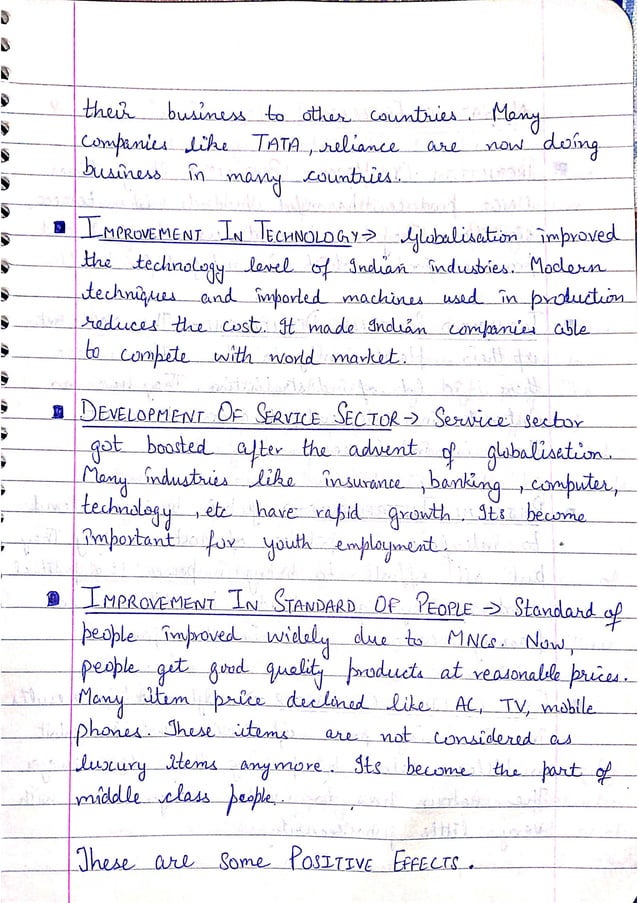 their business to other countries. Many
companies like TATA, reliance are now doing
business in many countries.
IMPROVEMENT IN TECHNOLOGY → Globalisation improved
the technology level of Indian industries. Modern
techniques and imported machines used in production
reduces the cost. It made Indian companies able
to compete with world market.
DEVELOPMENT OF SERVICE SECTOR → Service sector
got boosted after the advent of globalisation.
Many industries like insurance, banking, computer,
technology, etc have rapid growth. Its become
important for youth employment.
IMPROVEMENT IN STANDARD OF PEOPLE → Standard of
people improved widely due to MNCs. Now,
people get good quality products at reasonable prices.
Many item price declined like AC, TV, mobile
phones. These items are not considered as
luxury items anymore. Its become the part of
middle class people.
These are some POSITIVE EFFECTS.